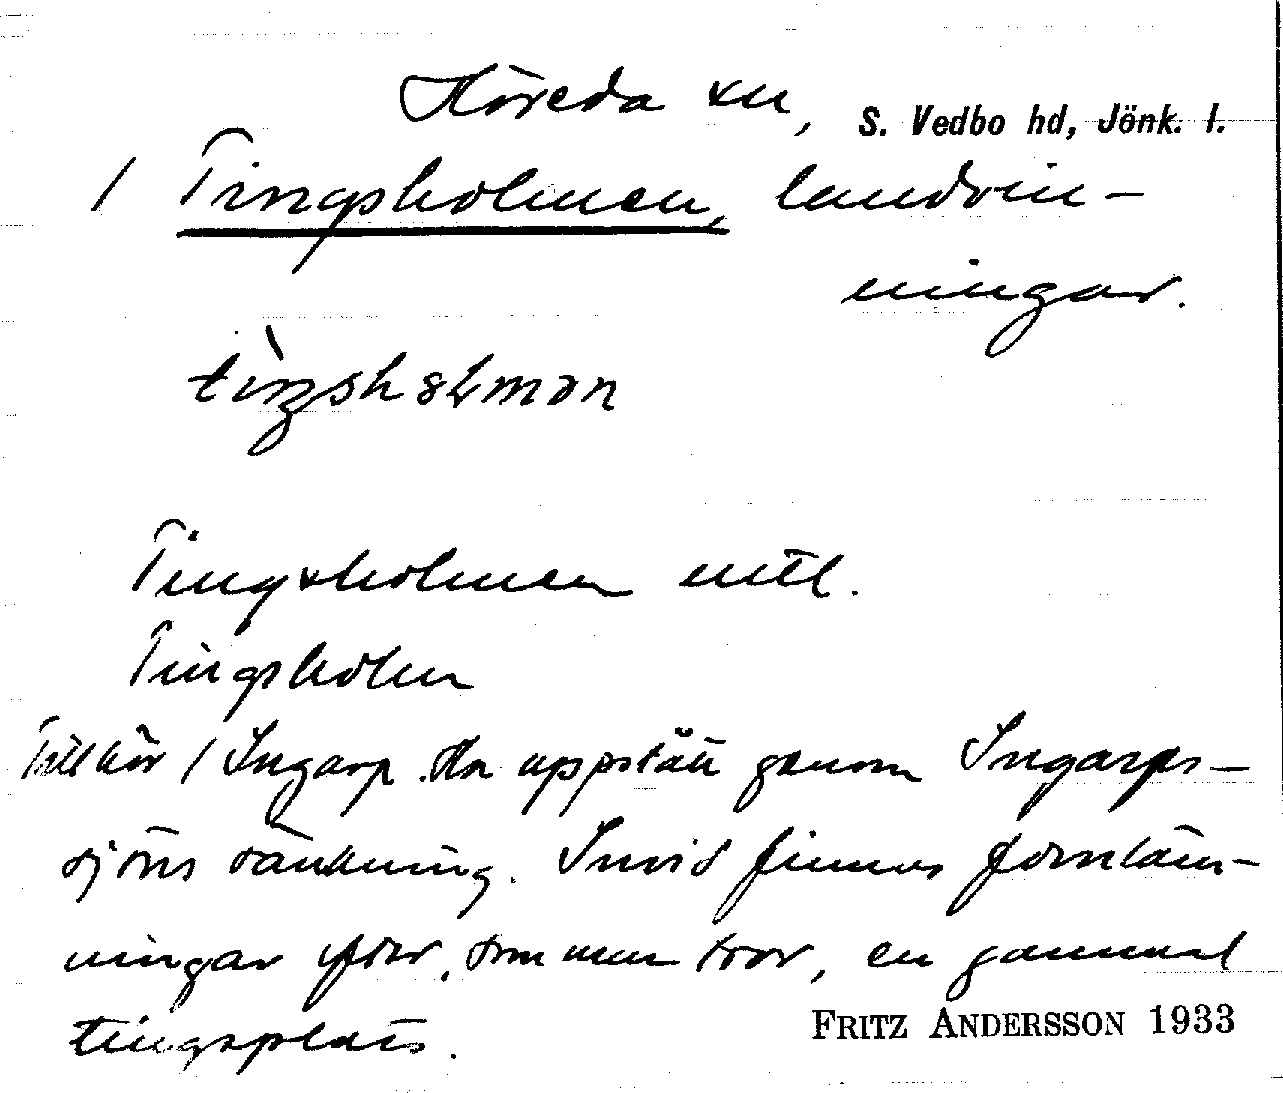 Höreda sn, S. Vedbo hd, Jönk. l.
/ Tingsholmen, landvin-
ningar.
Tingsholmen mtl.
Tingsholm
Tillhör / Ingarp. Ha uppstått genom Ingarps-
sjöns sänkning. Invid finnas fornläm-
ningar efter, som man tror, en gammal
tingsplats.
FRITZ ANDERSSON 1933